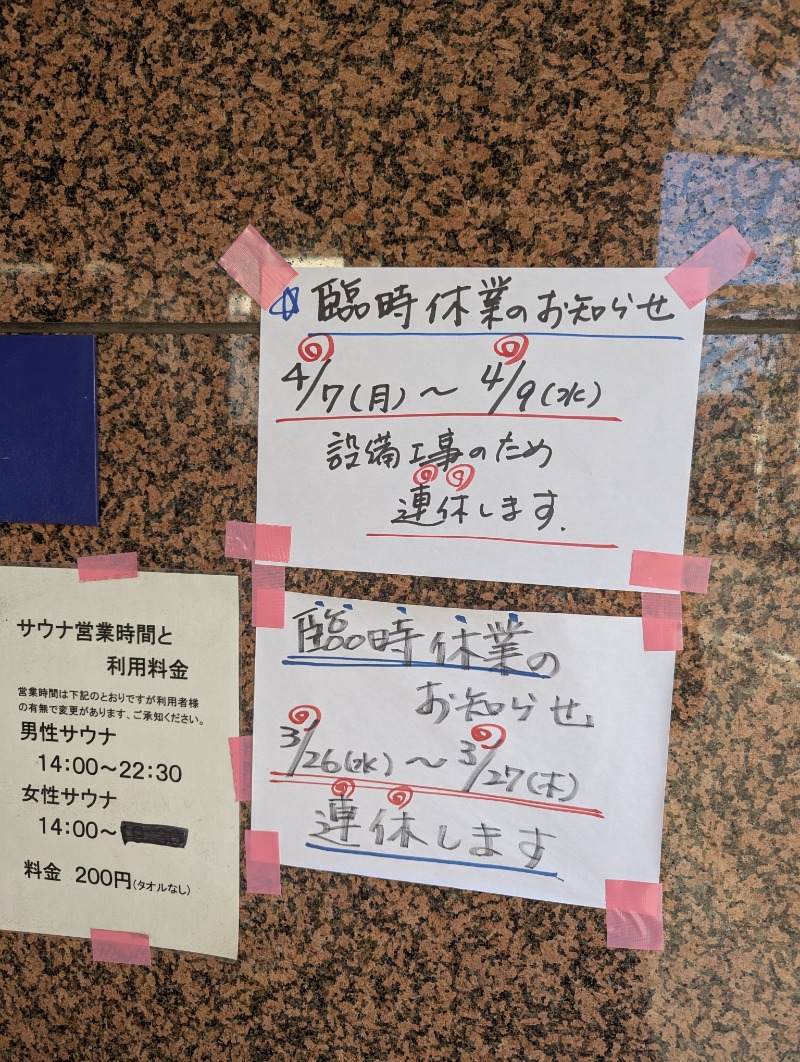 臨時休業のお知らせ
4/7(月)～4/9(水)
設備工事のため
連休します.
臨時休業の
お知らせ
3/26(水)～3/27(木)
連休します
サウナ営業時間と
利用料金
営業時間は下記のとおりですが利用者様
の有無で変更があります、ご承知ください。
男性サウナ
14:00～22:30
女性サウナ
14:00～
料金 200円(タオルなし)